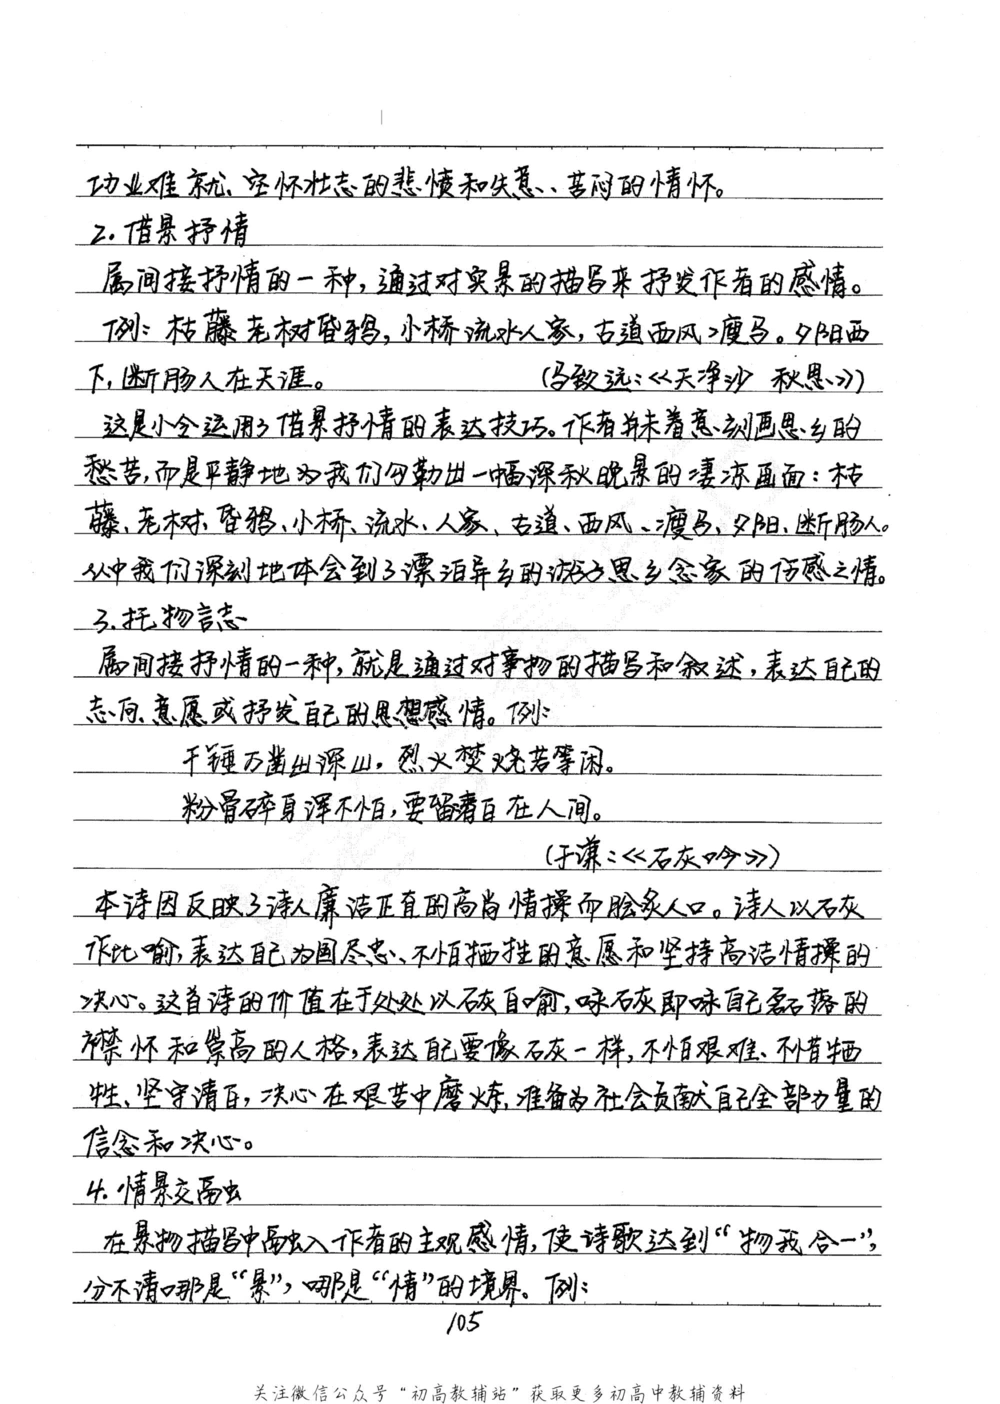 功业难就、空怀壮志的悲愤和失意、苦闷的情怀。
2.借景抒情
属间接抒情的一种,通过对实景的描写来抒发作者的感情。
例:枯藤老树昏鸦,小桥流水人家,古道西风瘦马。夕阳西
下,断肠人在天涯。 (马致远:《天净沙 秋思》)
这是小令运用了借景抒情的表达技巧。作者并未着意刻画思乡的
愁苦,而是平静地为我们勾勒出一幅深秋晚景的凄凉画面:枯
藤、老树、昏鸦、小桥、流水、人家、古道、西风、瘦马、夕阳、断肠人。
从中我们深刻地体会到了漂泊异乡的游子思乡念家的伤感之情。
3.托物言志
属间接抒情的一种,就是通过对事物的描写和叙述,表达自己的
志向、意愿或抒发自己的思想感情。例:
千锤万凿出深山,烈火焚烧若等闲。
粉骨碎身浑不怕,要留清白在人间。
(于谦:《石灰吟》)
本诗因反映了诗人廉洁正直的高尚情操而脍炙人口。诗人以石灰
作比喻,表达自己为国尽忠、不怕牺牲的意愿和坚持高洁情操的
决心。这首诗的价值在于处处以石灰自喻,咏石灰即咏自己磊落的
襟怀和崇高的人格,表达自己要像石灰一样,不怕艰难、不惜牺
牲、坚守清白,决心在艰苦中磨炼,准备为社会贡献自己全部力量的
信念和决心。
4.情景交融
在景物描写中融入作者的主观感情,使诗歌达到“物我合一”,
分不清哪是“景”,哪是“情”的境界。例:
105
关注微信公众号“初高教辅站”获取更多初高中教辅资料